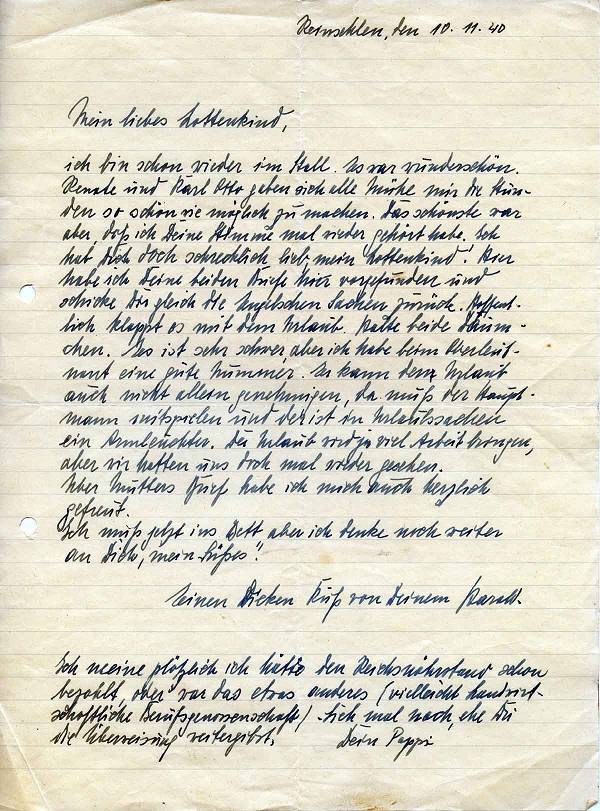 Reinsehlen, den 10.11.40
Mein liebes Lottenkind,
ich bin schon wieder im Stall. Es war wunderschön.
Renate und Karl Otto gaben sich alle Mühe mir die Stun-
den so schön wie möglich zu machen. Das schönste war
aber, daß ich Deine Stimme mal wieder gehört habe. Ich
hab Dich doch schrecklich lieb, mein Lottenkind! Hier
habe ich Deine beiden Briefe hier vorgefunden und
schicke Dir gleich die Sachen zurück. Hoffent-
lich klappt es mit dem Urlaub. Halte beide Däum-
chen. Es ist sehr schwer aber ich habe beim Oberleut-
nant eine gute Nummer. Er kann den Urlaub
auch nicht allein genehmigen, da muß der Haupt-
mann mitspielen und der ist in Urlaubssachen
ein Armleuchter. Der Urlaub wird ja viel Arbeit bringen,
aber wir hätten uns doch mal wieder gesehen.
Über Mutters Brief habe ich mich auch herzlich
gefreut.
Ich muß jetzt ins Bett aber ich denke noch weiter
an Dich, mein Süßes!
Einen Dicken Kuß von Deinem
Ich meine plötzlich ich hätte den Reichsnährstand schon
bezahlt, oder war das etwas anderes (vielleicht landwirt-
schaftliche Berufsgenossenschaft) Sieh mal nach, ehe Du
die Überweisung weitergibst. Dein Peppi